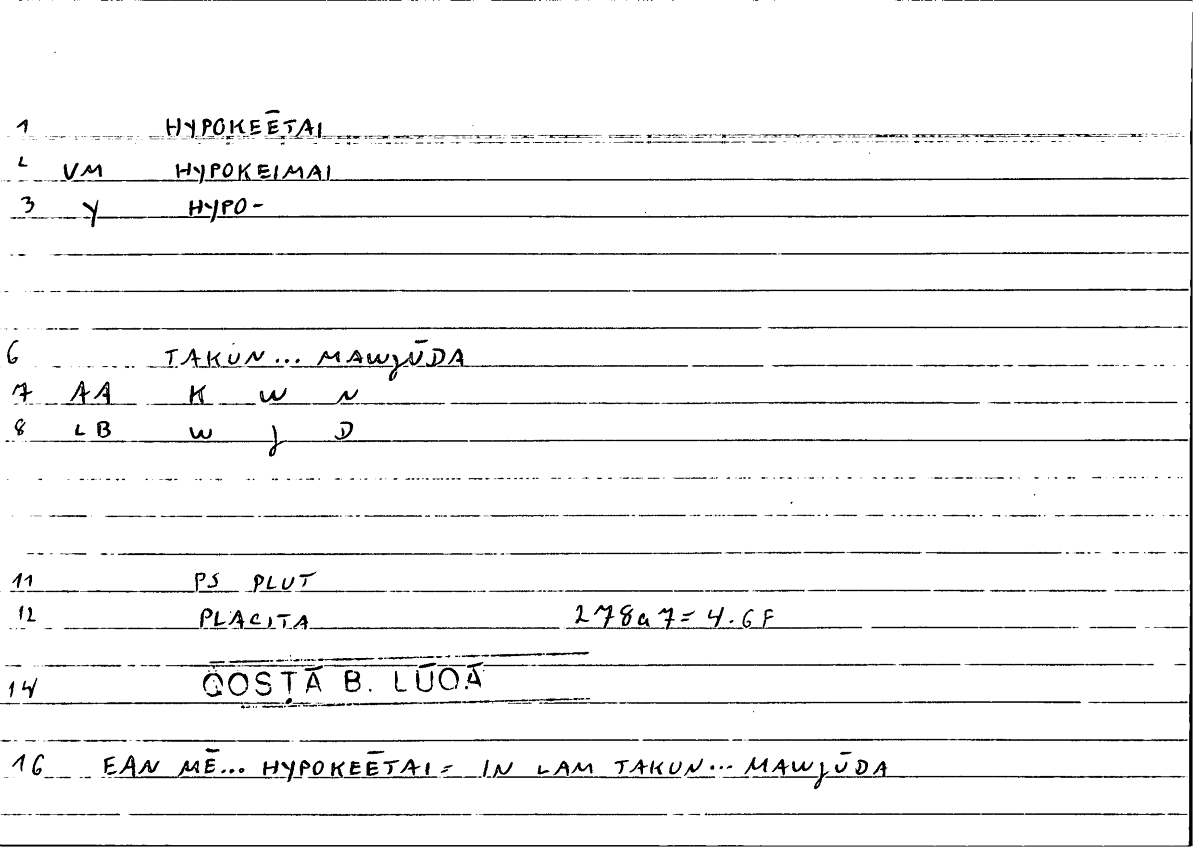 1 HYPOKEĒTAI
2 VM HYPOKEIMAI
3 Y HYPO-
6 TAKUN... MAWJŪDA
7 AA K W N
8 LB W J D
11 PS PLUT
12 PLACITA 278a7=4.6F
14 QOSṬĀ B. LŪQĀ
16 EAN MĒ... HYPOKEĒTAI= IN LAM TAKUN... MAWJŪDA